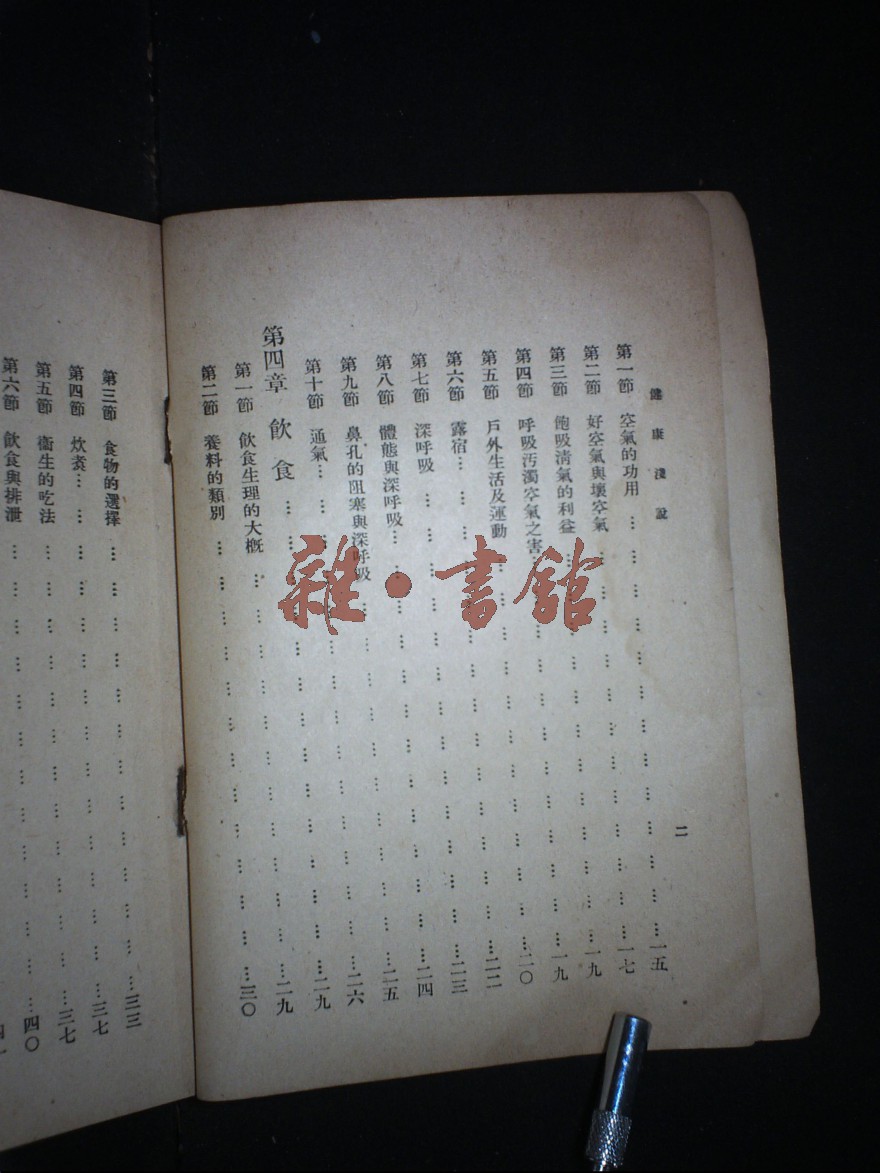 健康淺說
二
第一節 空氣的功用 … … … … … … … … … … … … …一五
第二節 好空氣與壞空氣 … … … … … … … … … … … …一七
第三節 飽吸清氣的利益 … … … … … … … … … … … …一九
第四節 呼吸汚濁空氣之害 … … … … … … … … … … …一九
第五節 戶外生活及運動 … … … … … … … … … … … …二〇
第六節 露宿 … … … … … … … … … … … … … …二二
第七節 深呼吸 … … … … … … … … … … … … …二三
第八節 體態與深呼吸 … … … … … … … … … … … …二四
第九節 鼻孔的阻塞與深呼吸 … … … … … … … … … …二五
第十節 通氣 … … … … … … … … … … … … … …二六
第四章 飲食 … … … … … … … … … … … … …二九
第一節 飲食生理的大槪 … … … … … … … … … … …二九
第二節 養料的類別 … … … … … … … … … … … …三〇
第三節 食物的選擇 … … … … … … … … … … … …三三
第四節 炊煑 … … … … … … … … … … … … … …三七
第五節 衞生的吃法 … … … … … … … … … … … …三七
第六節 飲食與排泄 … … … … … … … … … … … …四〇
雜·書館